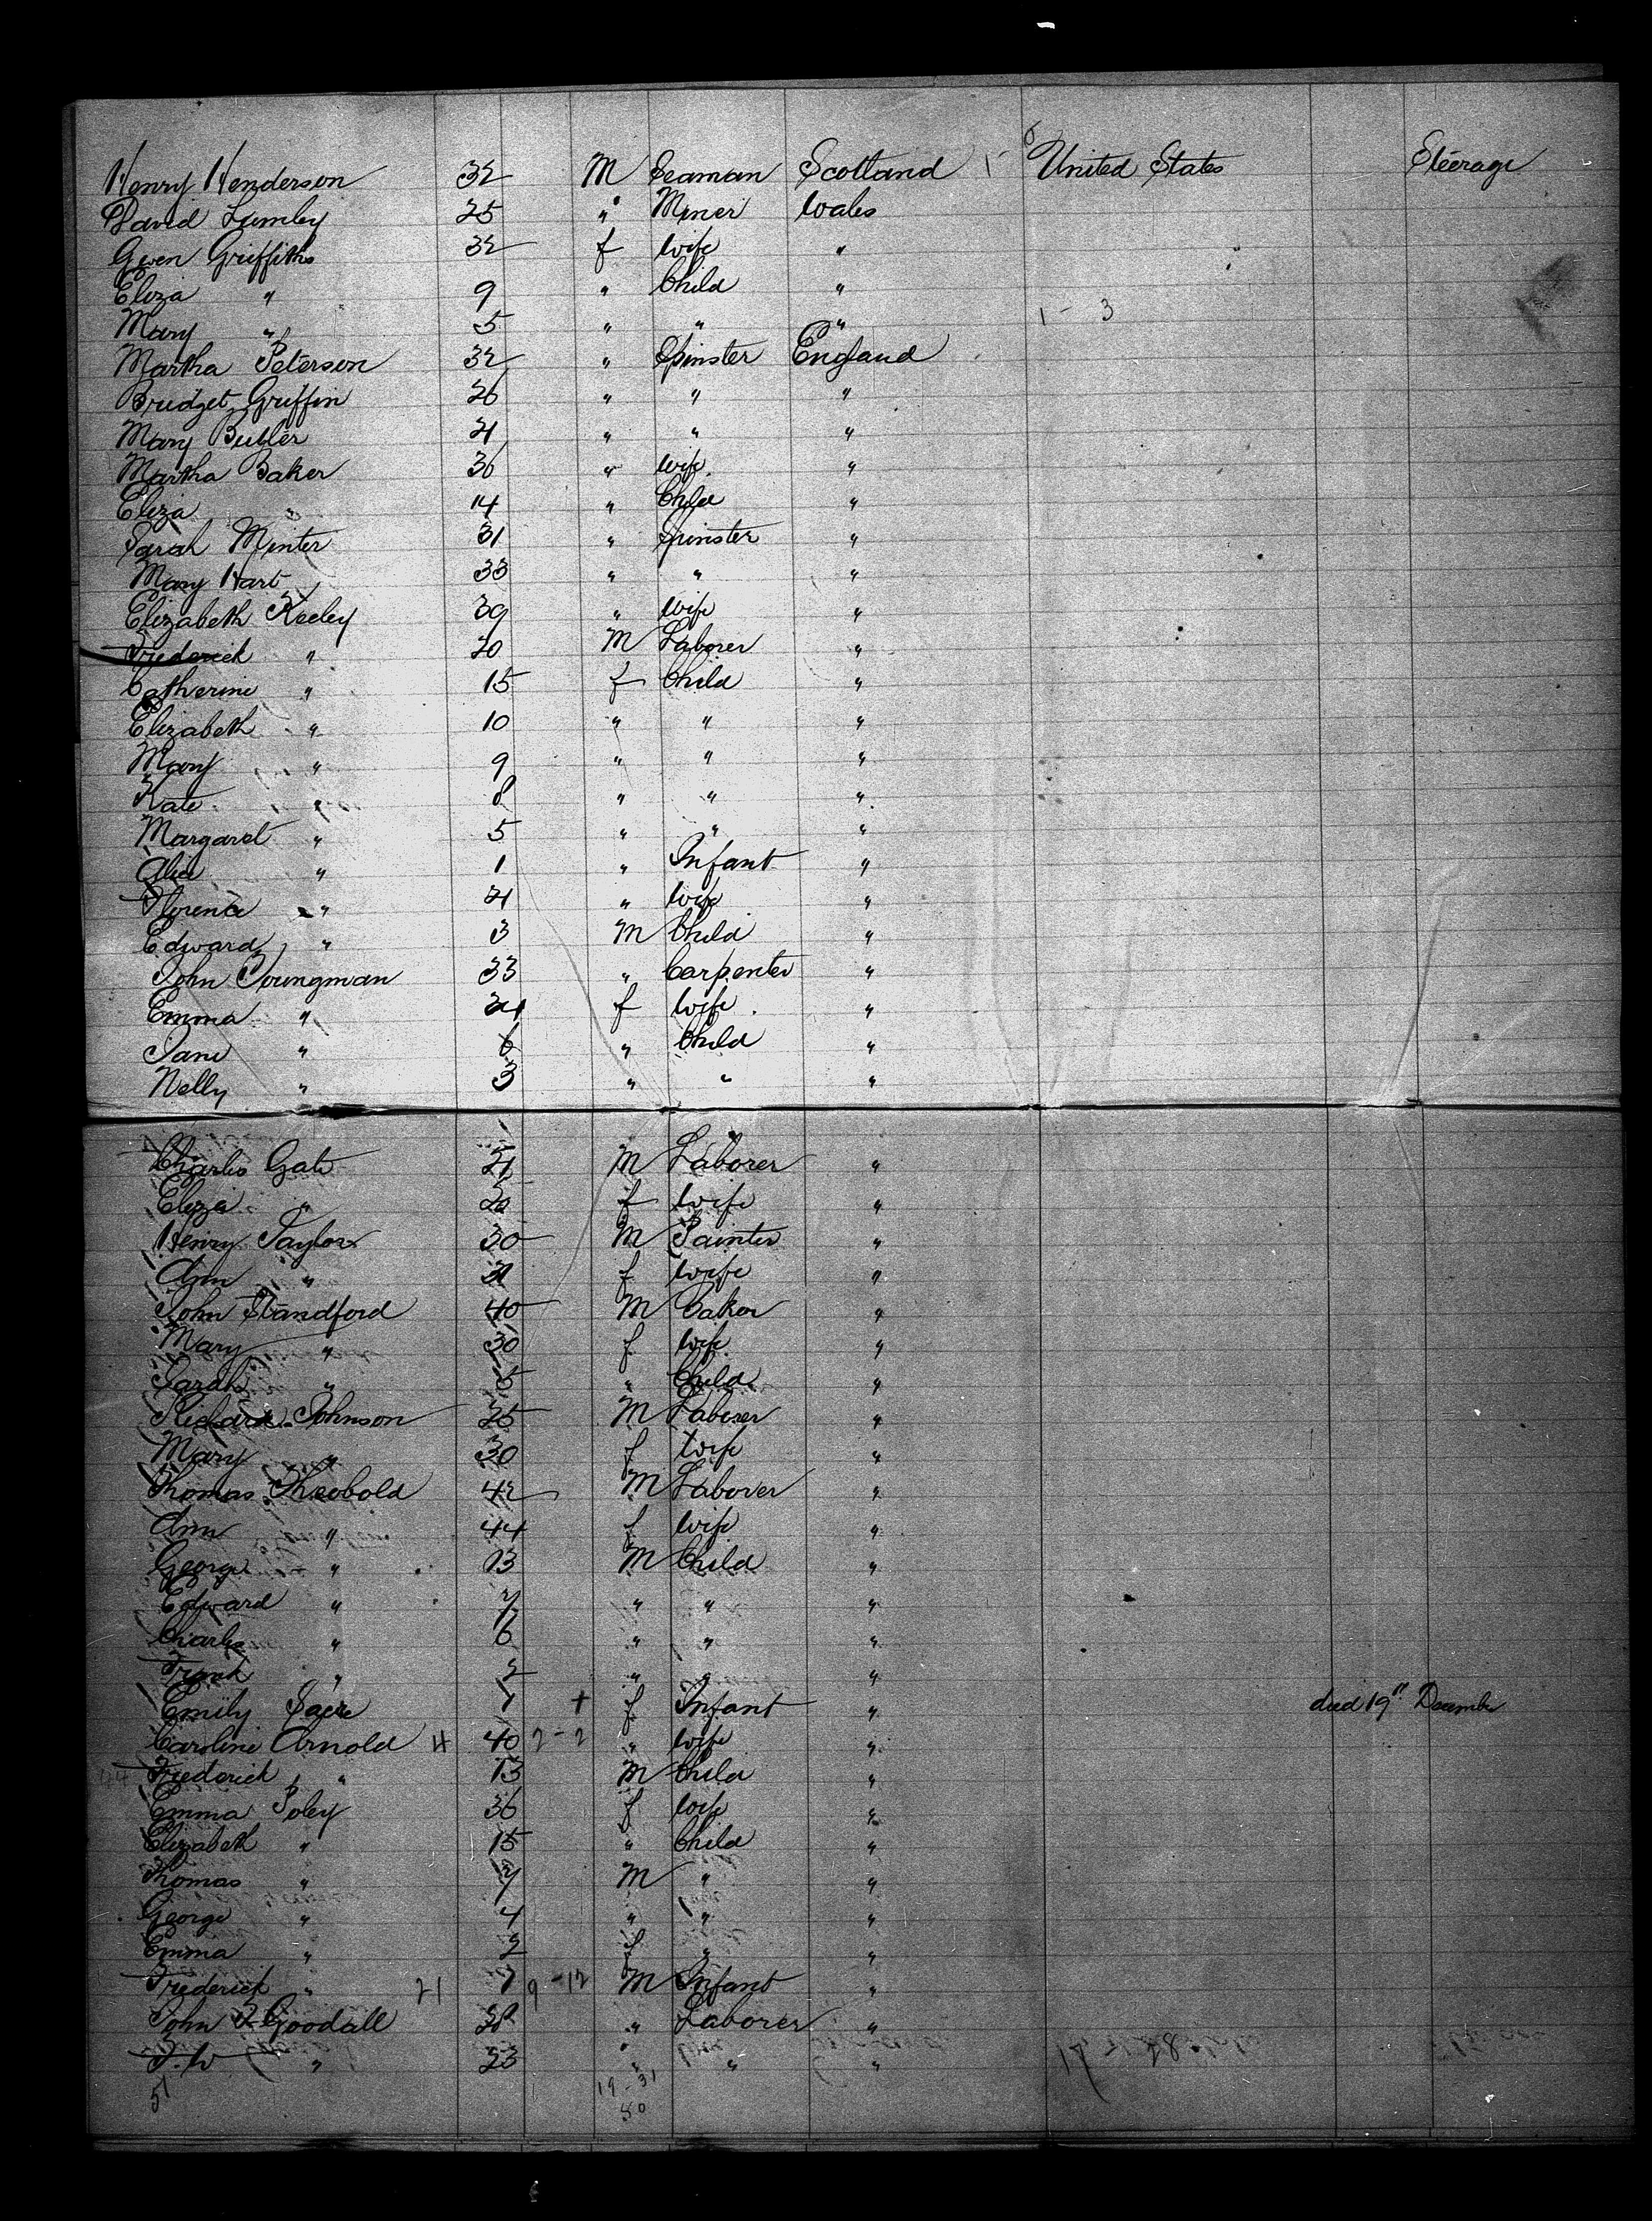 Henry Henderson 32 M Seaman Scotland United States Steerage
David Lumley 25 " Miner Wales
Gwen Griffiths 32 f wife "
Eliza " 9 " Child "
Mary " 5 " " " 1 - 3
Martha Peterson 32 " Spinster England
Bridget Griffin 26 " " "
Mary Butler 21 " " "
Martha Baker 36 " wife "
Eliza " 14 " Child "
Sarah Minter 31 " Spinster "
Mary Hart 33 " " "
Elizabeth Keeley 39 " wife "
Frederick " 20 M Laborer "
Catherine " 15 f Child "
Elizabeth " 10 " " "
Mary " 9 " " "
Kate " 8 " " "
Margaret " 5 " " "
Alice " 1 " Infant "
Florence " 21 " wife "
Edward " 3 M Child "
John Youngman 33 " Carpenter "
Emma " f wife "
Jane " 6 " Child "
Nelly " 3 " " "
Charles Gate 21 M Laborer "
Eliza " 20 f wife "
Henry Taylor 30 M Painter "
Ann " f wife "
John Standford 40 M baker "
Mary " 30 f wife "
Sarah " 5 " Child "
Richard Johnson 25 M Laborer "
Mary " 30 f wife "
Thomas Theobold 42 M Laborer "
Ann " 44 f wife "
George " 13 M Child "
Edward " 7 " " "
Charles " 6 " " "
Frank " 2 " " "
Emily 1 + f Infant " died 19" December
Caroline Arnold 40 2 - 2 " wife "
Frederick " 13 M Child "
Emma Poley 36 f wife "
Elizabeth " 15 " Child "
Thomas " 7 M " "
George " 4 " " "
Emma " 2 f " "
Frederick " 21 1 9 - 12 M Infant "
John Goodall " Laborer "
" 23 " " "
51 19 - 31
50